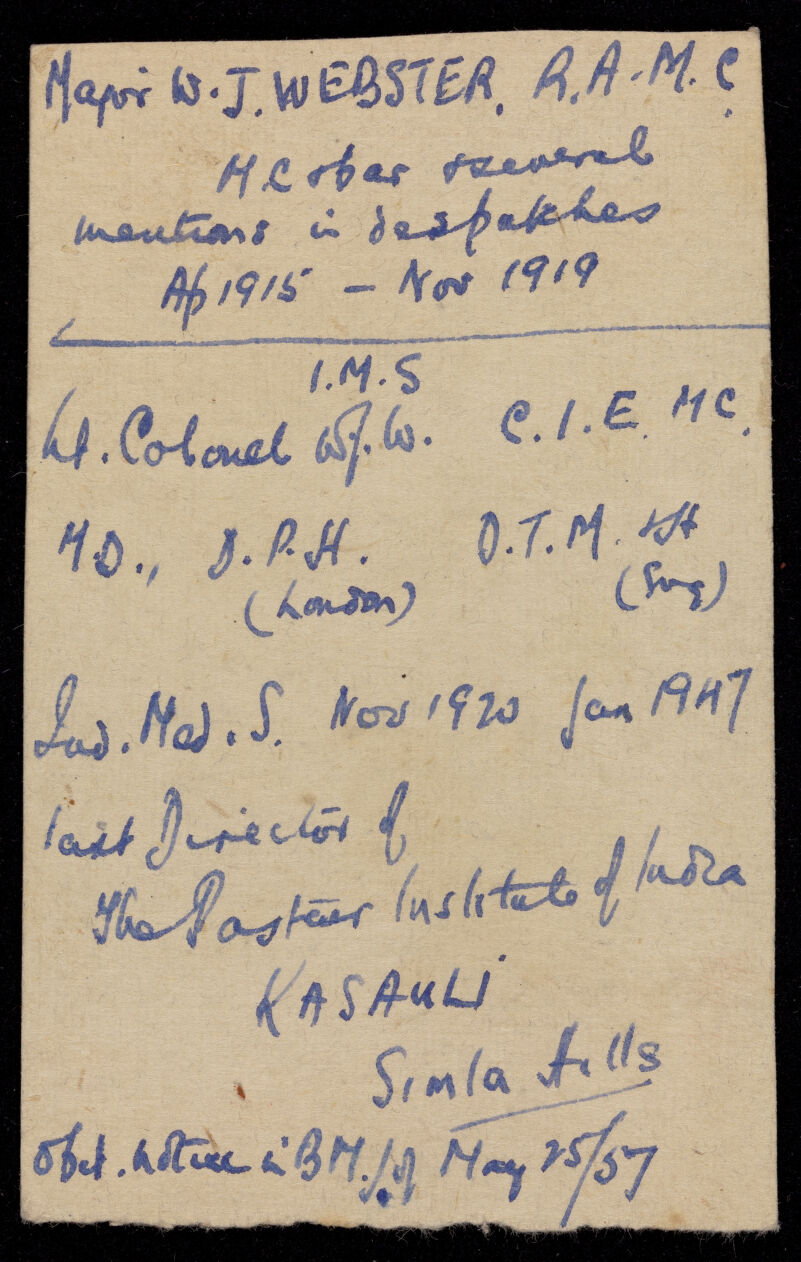 Major W. J. WEBSTER. R. A. M. C.
M C & bar & several
mentions in despatches
Ap 1915 – Nov 1919
I.M.S
Lt. Colonel W.J.W. C.I.E. MC.
M.D., D.P.H. D.T.M. & H
(London) (Eng)
Ind. Med. S. Nov 1920 Jan 1947
last Director of
The Pasteur Institute of India
KASAULI
Simla Hills
Obit. notice in B M.J. of May 25/57